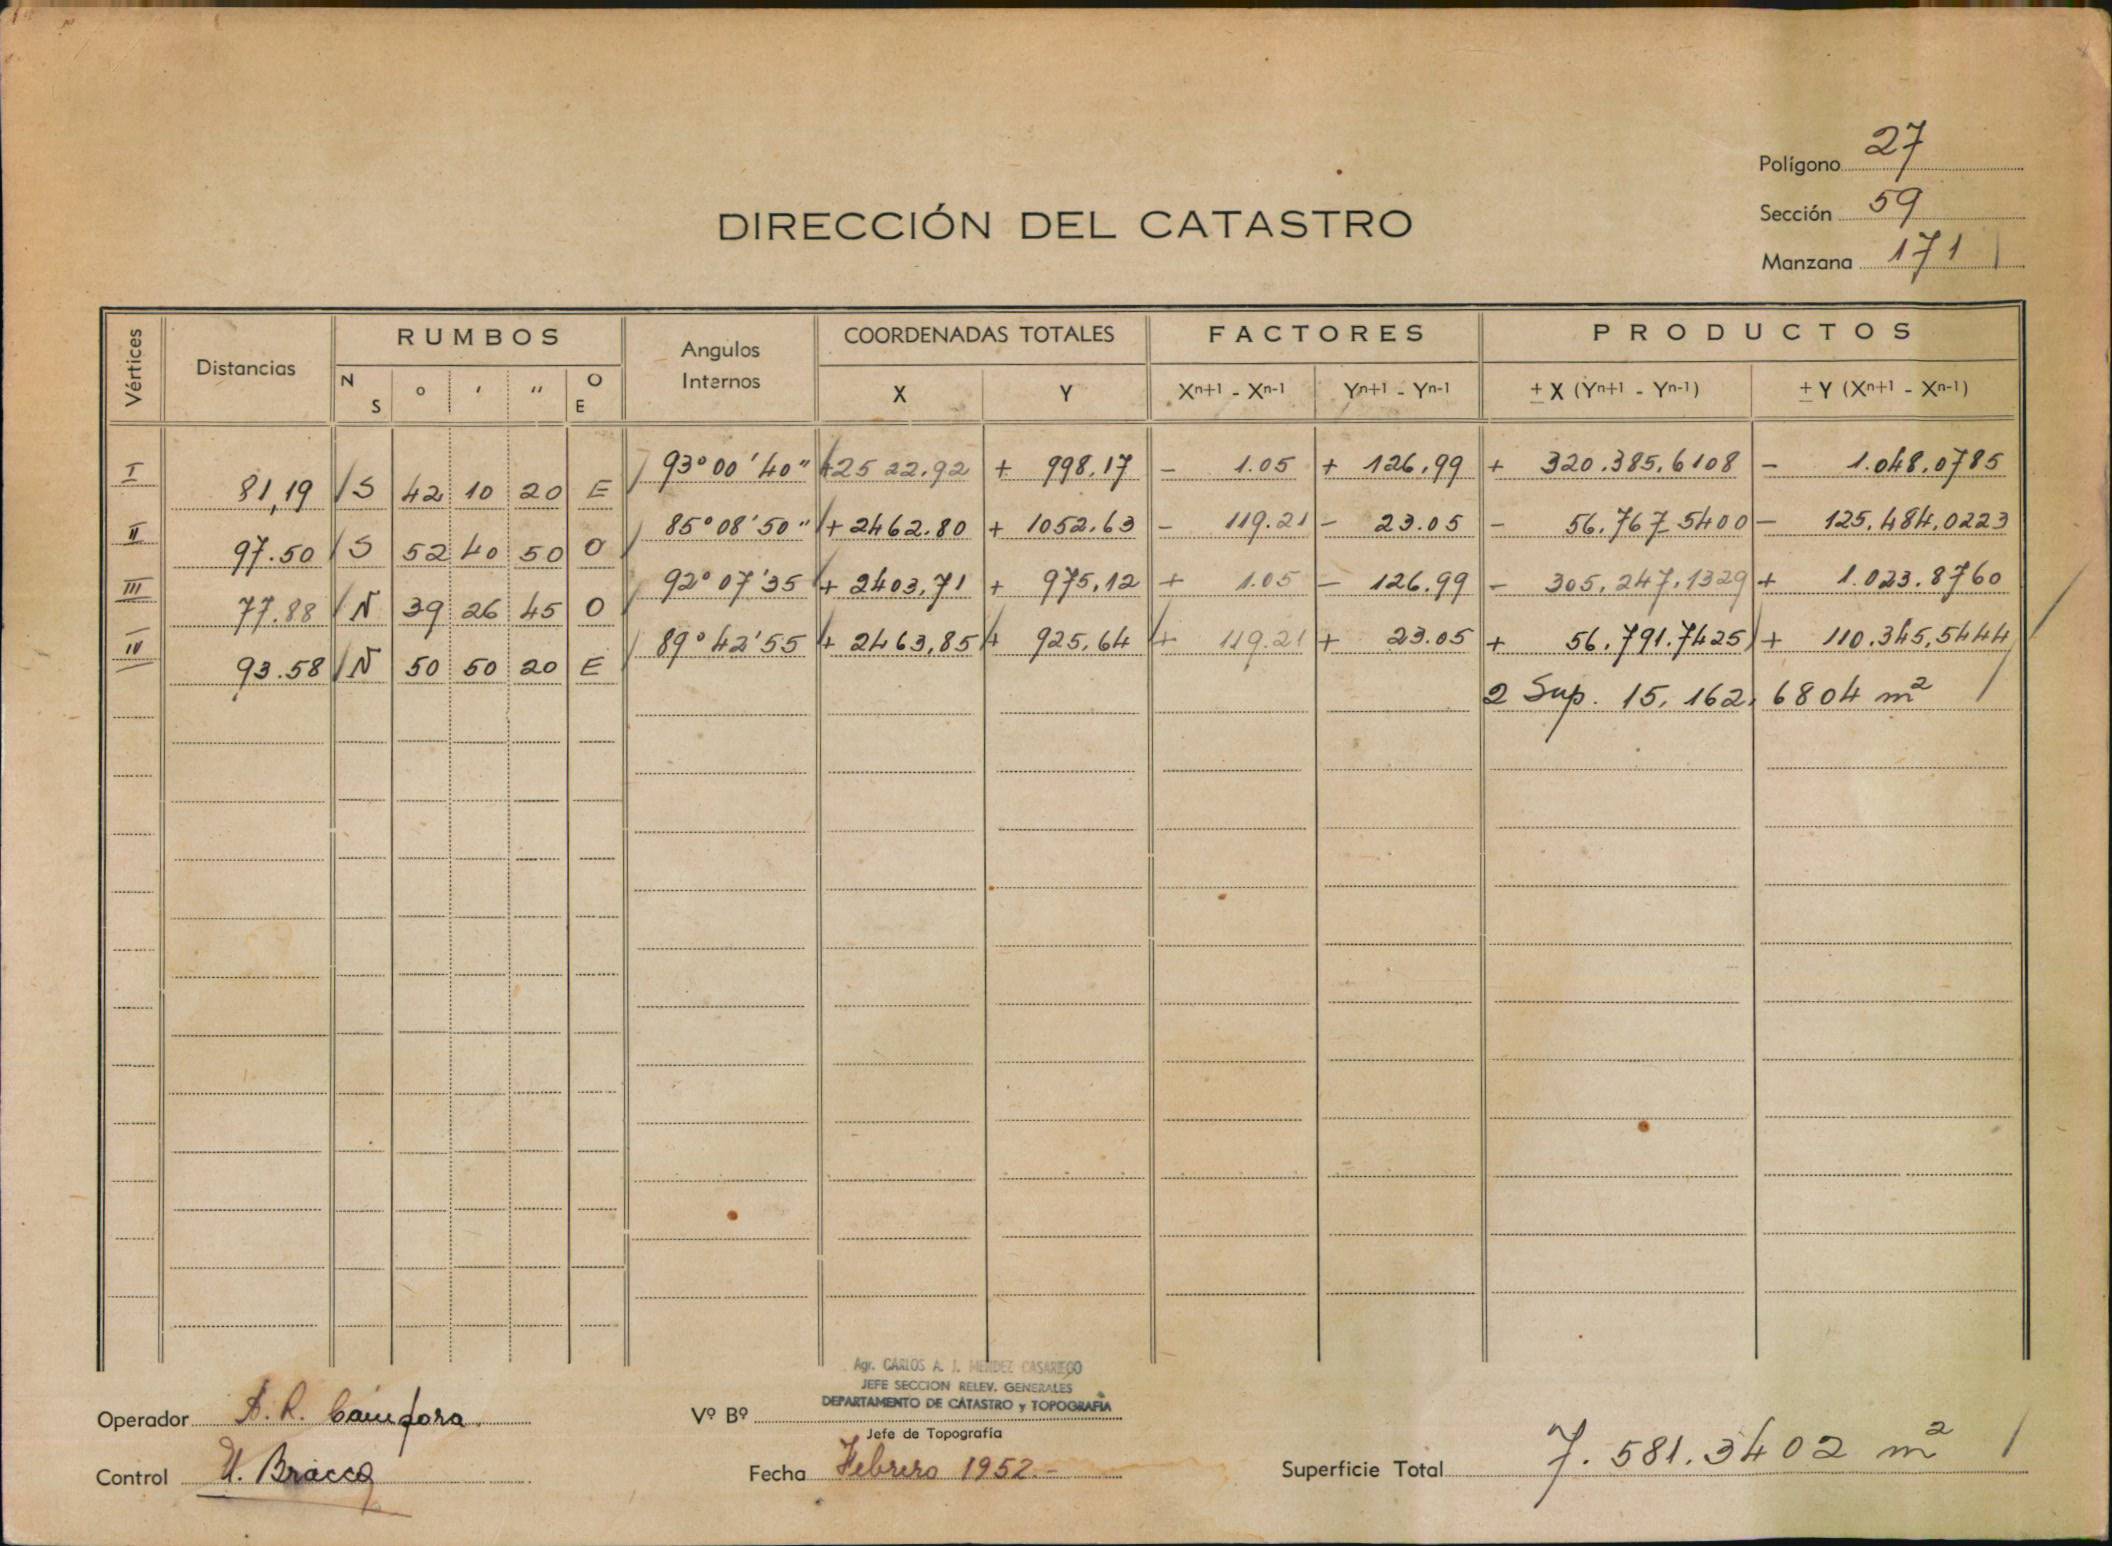 Polígono 27
Sección 59
Manzana 171
DIRECCIÓN DEL CATASTRO
Vértices Distancias RUMBOS Angulos Internos COORDENADAS TOTALES FACTORES PRODUCTOS
N S ° ' '' O E X Y Xn+1 - Xn-1 Yn+1 - Yn-1 ± X (Yn+1 - Yn-1) ± Y (Xn+1 - Xn-1)
I 81,19 S 42 10 20 E 93° 00' 40" +2522.92 + 998.17 - 1.05 + 126,99 + 320.385,6108 - 1.048,0785
II 97.50 S 52 40 50 O 85° 08' 50" + 2462.80 + 1052.63 - 119.21 - 23.05 - 56.767.5400 - 125.484,0223
III 77.88 N 39 26 45 O 92° 07' 35 + 2403,71 + 975,12 + 1.05 - 126.99 - 305,247,1329 + 1.023.8760
IV 93.58 N 50 50 20 E 89° 42' 55 + 2463,85 + 925,64 + 119.21 + 23.05 + 56.791.7425 + 110.345,5444
2 Sup. 15,162,6804 m²
Agr. CARLOS A. J. MENDEZ CASARIEGO
JEFE SECCION RELEV. GENERALES
DEPARTAMENTO DE CATASTRO y TOPOGRAFIA
Operador A. R. Cámpora Vº Bº
Jefe de Topografía
Control Bracco Fecha Febrero 1952.- Superficie Total 7.581.3402 m²